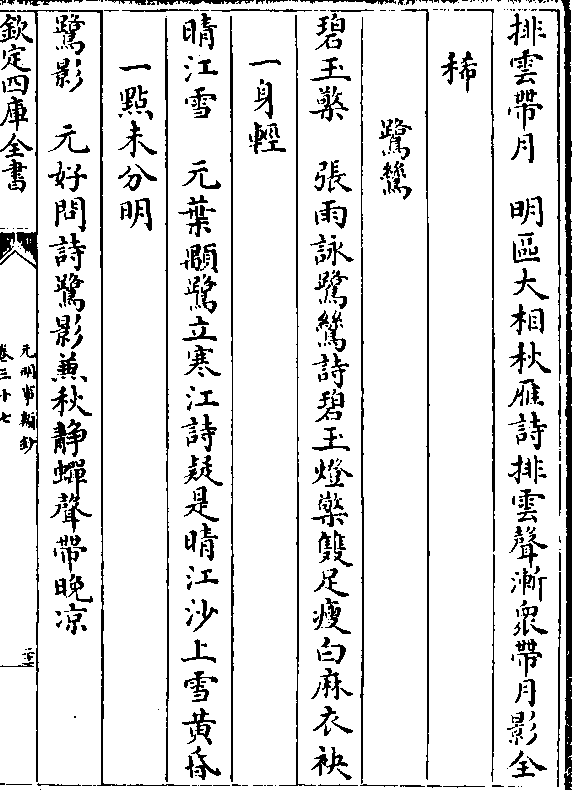 排雲帶月　明區大相秋雁詩排雲聲漸衆帶月影全
稀
鷺鷥
碧玉檠　張雨詠鷺鷥詩碧玉燈檠雙足瘦白麻衣袂
一身輕
晴江雪　元葉顒鷺立寒江詩疑是晴江沙上雪黃昏
一點未分明
鷺影　元好問詩鷺影兼秋靜蟬聲帶晚凉
欽定四庫全書
元明事類鈔
卷三十七